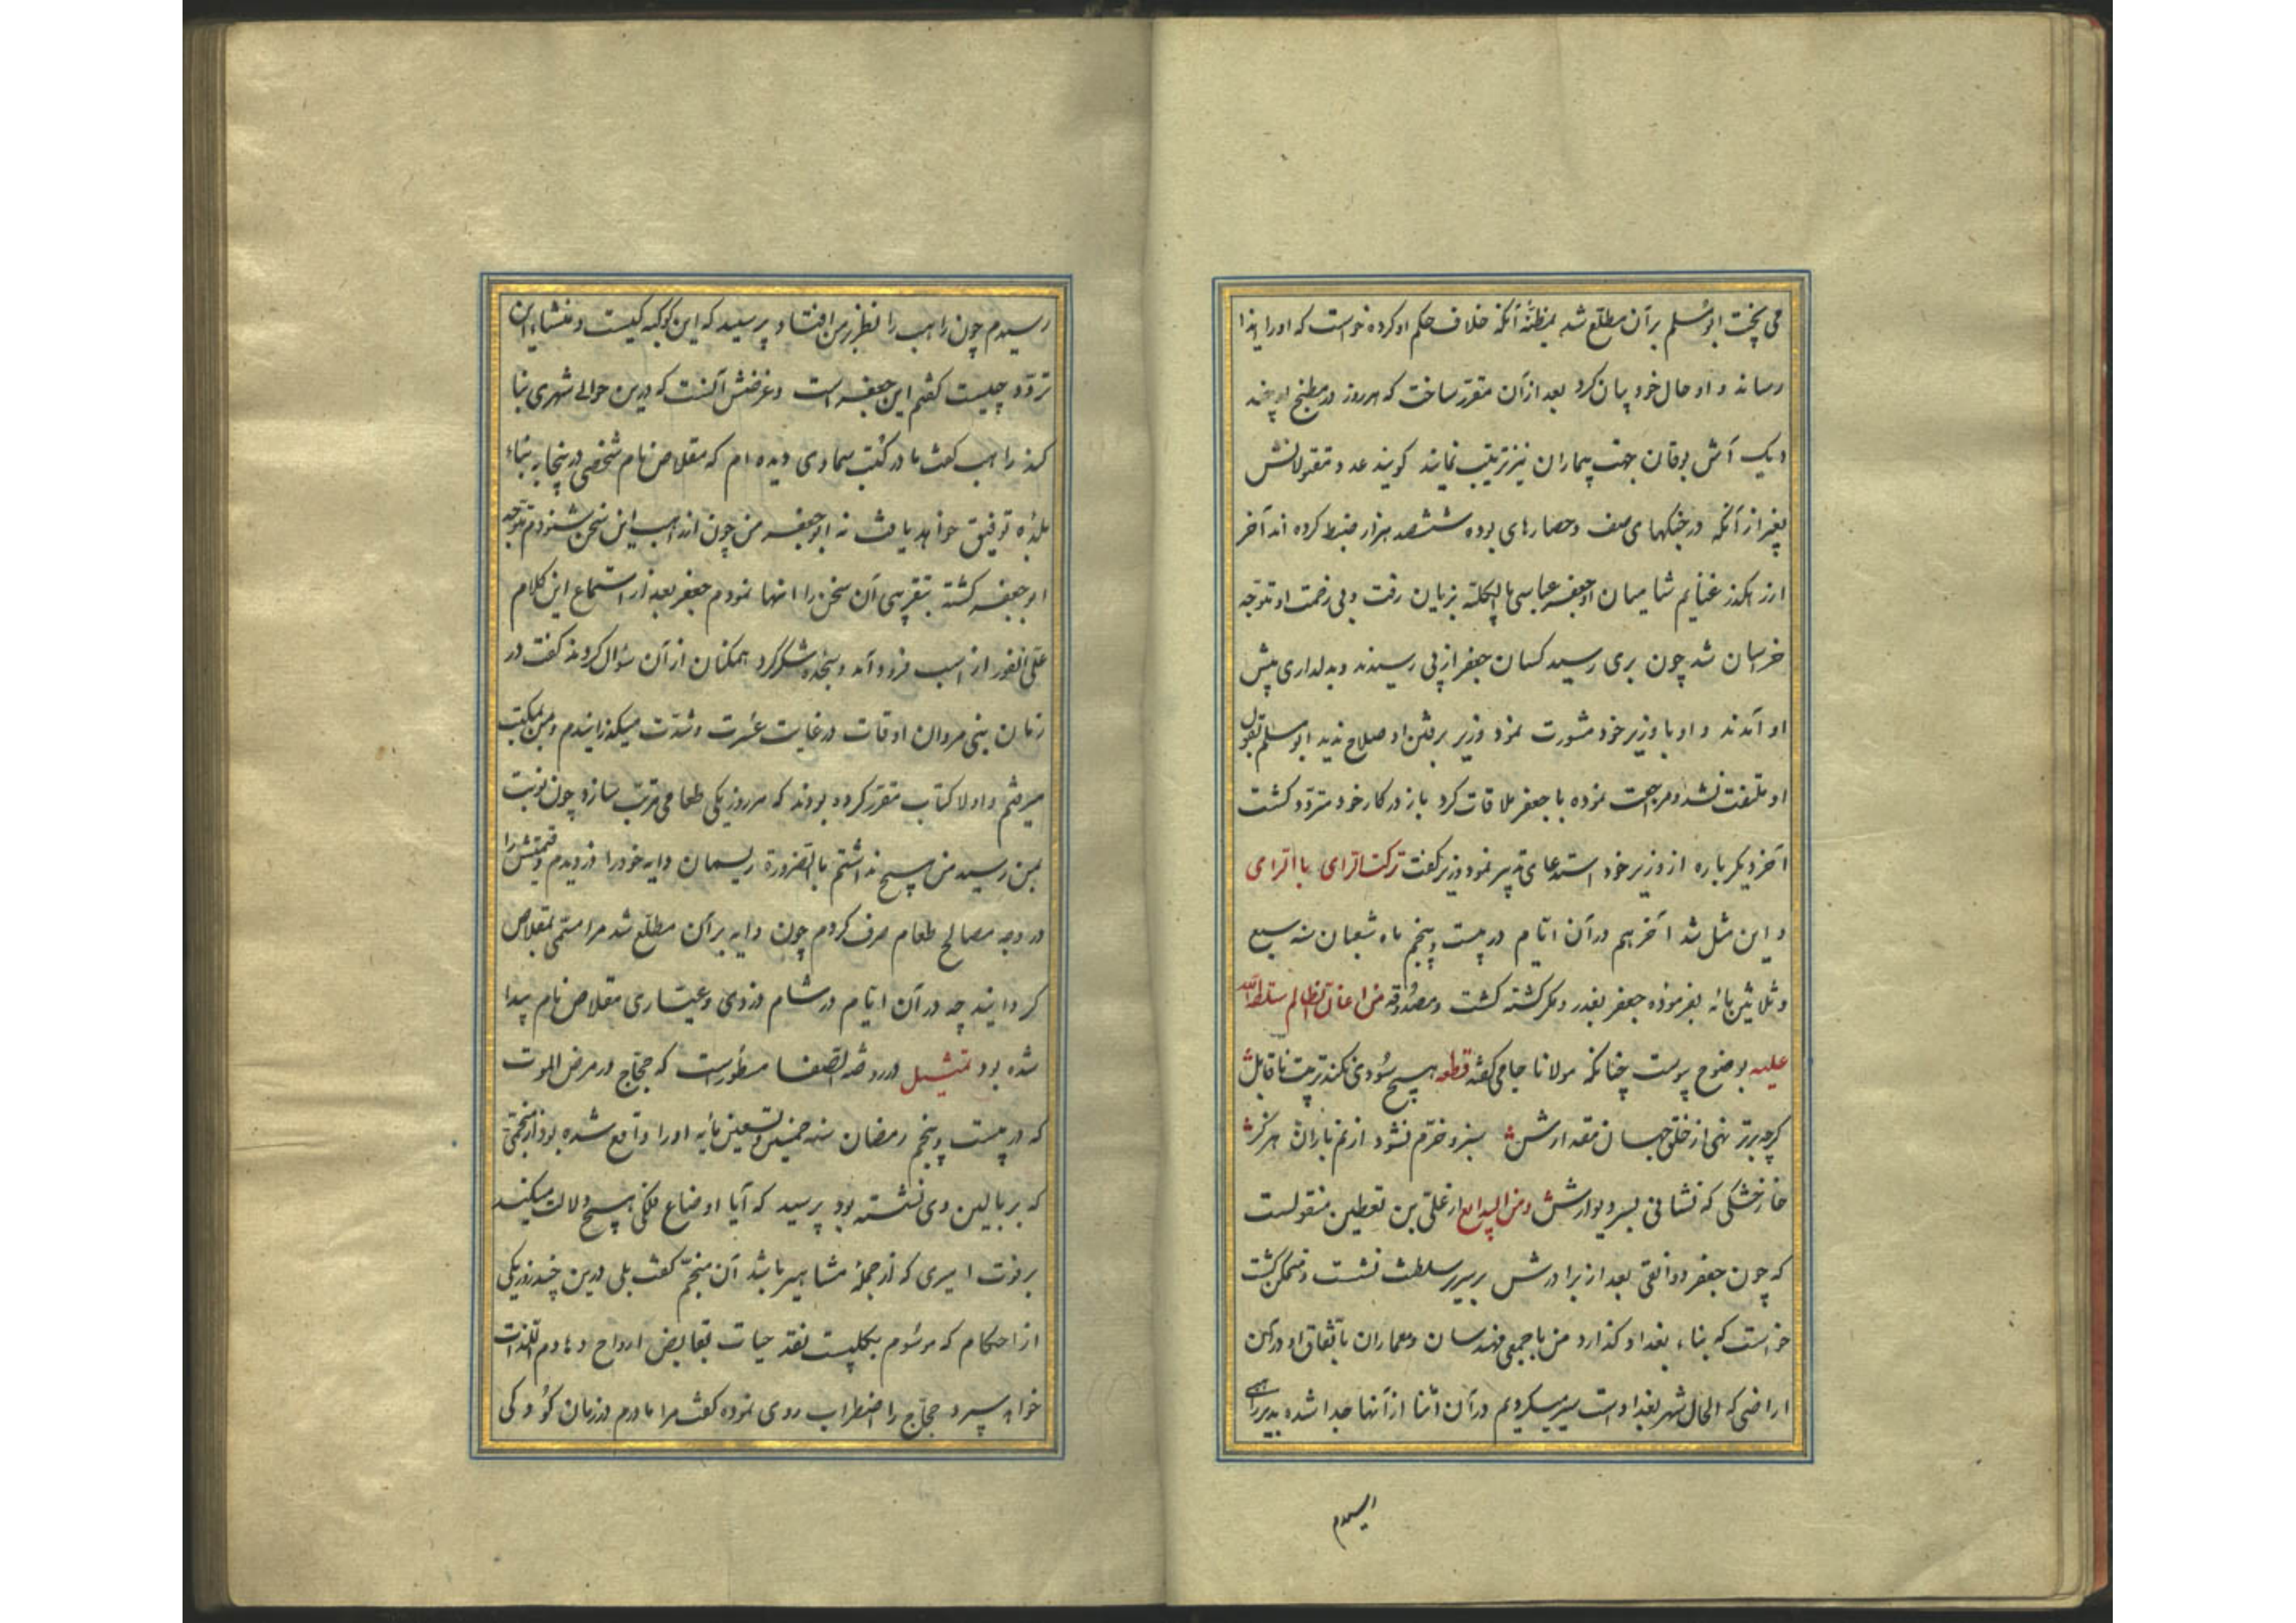 می پخت ابومسلم بر آن مطلع شد بمظنهٔ آنکه خلاف حکم او کرده خواست که او را ایذا
رساند و او حال خود بیان کرد بعد از آن مقرر ساخت که هر روز در مطبخ او چند
دیک آش بوقان بجهت بیماران نیز ترتیب نمایند کویند عدد مقتولانش
بغیر از آنکه در جنکهای صف و حصارهای بوده ششصد هزار ضبط کرده اند آخر
از رهکذر غنایم شامیان ابوجعفر عباسی بالجمله بزبان رفت و بی رخصت او متوجه
خراسان شد چون بری رسید کسان جعفر از پی رسیدند و بدلداری پیش
او آمدند و او با وزیر خود مشورت نمود وزیر برفتن او صلاح ندید ابومسلم بقول
او ملتفت نشد و مراجعت نموده با جعفر ملاقات کرد باز در کار خود متردد کشت
آخر دیکر باره از وزیر خود استدعای تدبیر نمود وزیر کفت ترکت الرای بالرای
و این مثل شد آخر هم در آن ایام در بیست و پنجم ماه شعبان سنه سبع
و ثلاثین مائه بفرموده جعفر بغدر و مکر کشته کشت و مصدوقه من اعان الظالم سلطه الله
علیه بوضوح پیوست چنانکه مولانا جامی کفته قطعه هیچ سودی نکند تربیت ناقابل
کرچه برتر نهی از خلق جهان مقدارش سبز و خرم نشود از نم باران هرکز
خار خشکی که نشانی بسر دیوارش و من البدایع از علی بن یقطین منقولست
که چون جعفر دوانقی بعد از برادرش بر سریر سلطنت نشست و متمکن کشت
خواست که بناء بغداد کذارد من با جمعی مهندسان و معماران باتفاق او در آن
اراضی که الحال شهر بغداد است سیر میکردیم در آن اثنا از آنها جدا شده بدیر راهبی
رسیدم چون راهب را نظر بر من افتاد پرسید که این کوکبه کیست و منشاء این
تردد چیست کفتم این جعفر است و غرضش آنست که درین حوالی شهری بنا
کند راهب کفت ما در کتب سماوی دیده ام که مقلاص نام شخصی در اینجا به بناء
بلده توفیق خواهد یافت نه ابوجعفر من چون از راهب این سخن شنودم متوجه
ابوجعفر کشته بتقریبی آن سخن را انها نمودم جعفر بعد از استماع این کلام
علی الفور از اسب فرود آمد و سجده شکر کرد همکنان از آن سؤال کردند کفت در
زمان بنی مروان اوقات در غایت عسرت و شدت میکذرانیدم و من بمکتب
میرفتم و اولا کتاب مقرر کرده بودند که هر روز یکی طعامی مرتب سازد چون نوبت
بمن رسید من هیچ نداشتم بالضرورة ریسمان دایه خود را دزدیدم و قیمتش را
در وجه مصالح طعام صرف کردم چون دایه بر آن مطلع شد مرا مسمی بمقلاص
کردانید چه در آن ایام در شام دزدی و عیاری مقلاص نام پیدا
شده بود تمثیل در روضه الصفا مسطور است که حجاج در مرض الموت
که در بیست و پنجم رمضان سنه خمس و تسعین مائه او را واقع شده بود از منجمی
که بر بالین وی نشسته بود پرسید که آیا اوضاع فلکی هیچ دلالت میکند
بر فوت امیری که از جملهٔ مشاهیر باشد آن منجم کفت بلی درین چند روز یکی
از احکام که موسوم بکلیب است نقد حیات بقابض ارواح و هادم اللذات
خواهد سپرد حجاج را اضطراب روی نموده کفت مرا مادرم در زمان کودکی